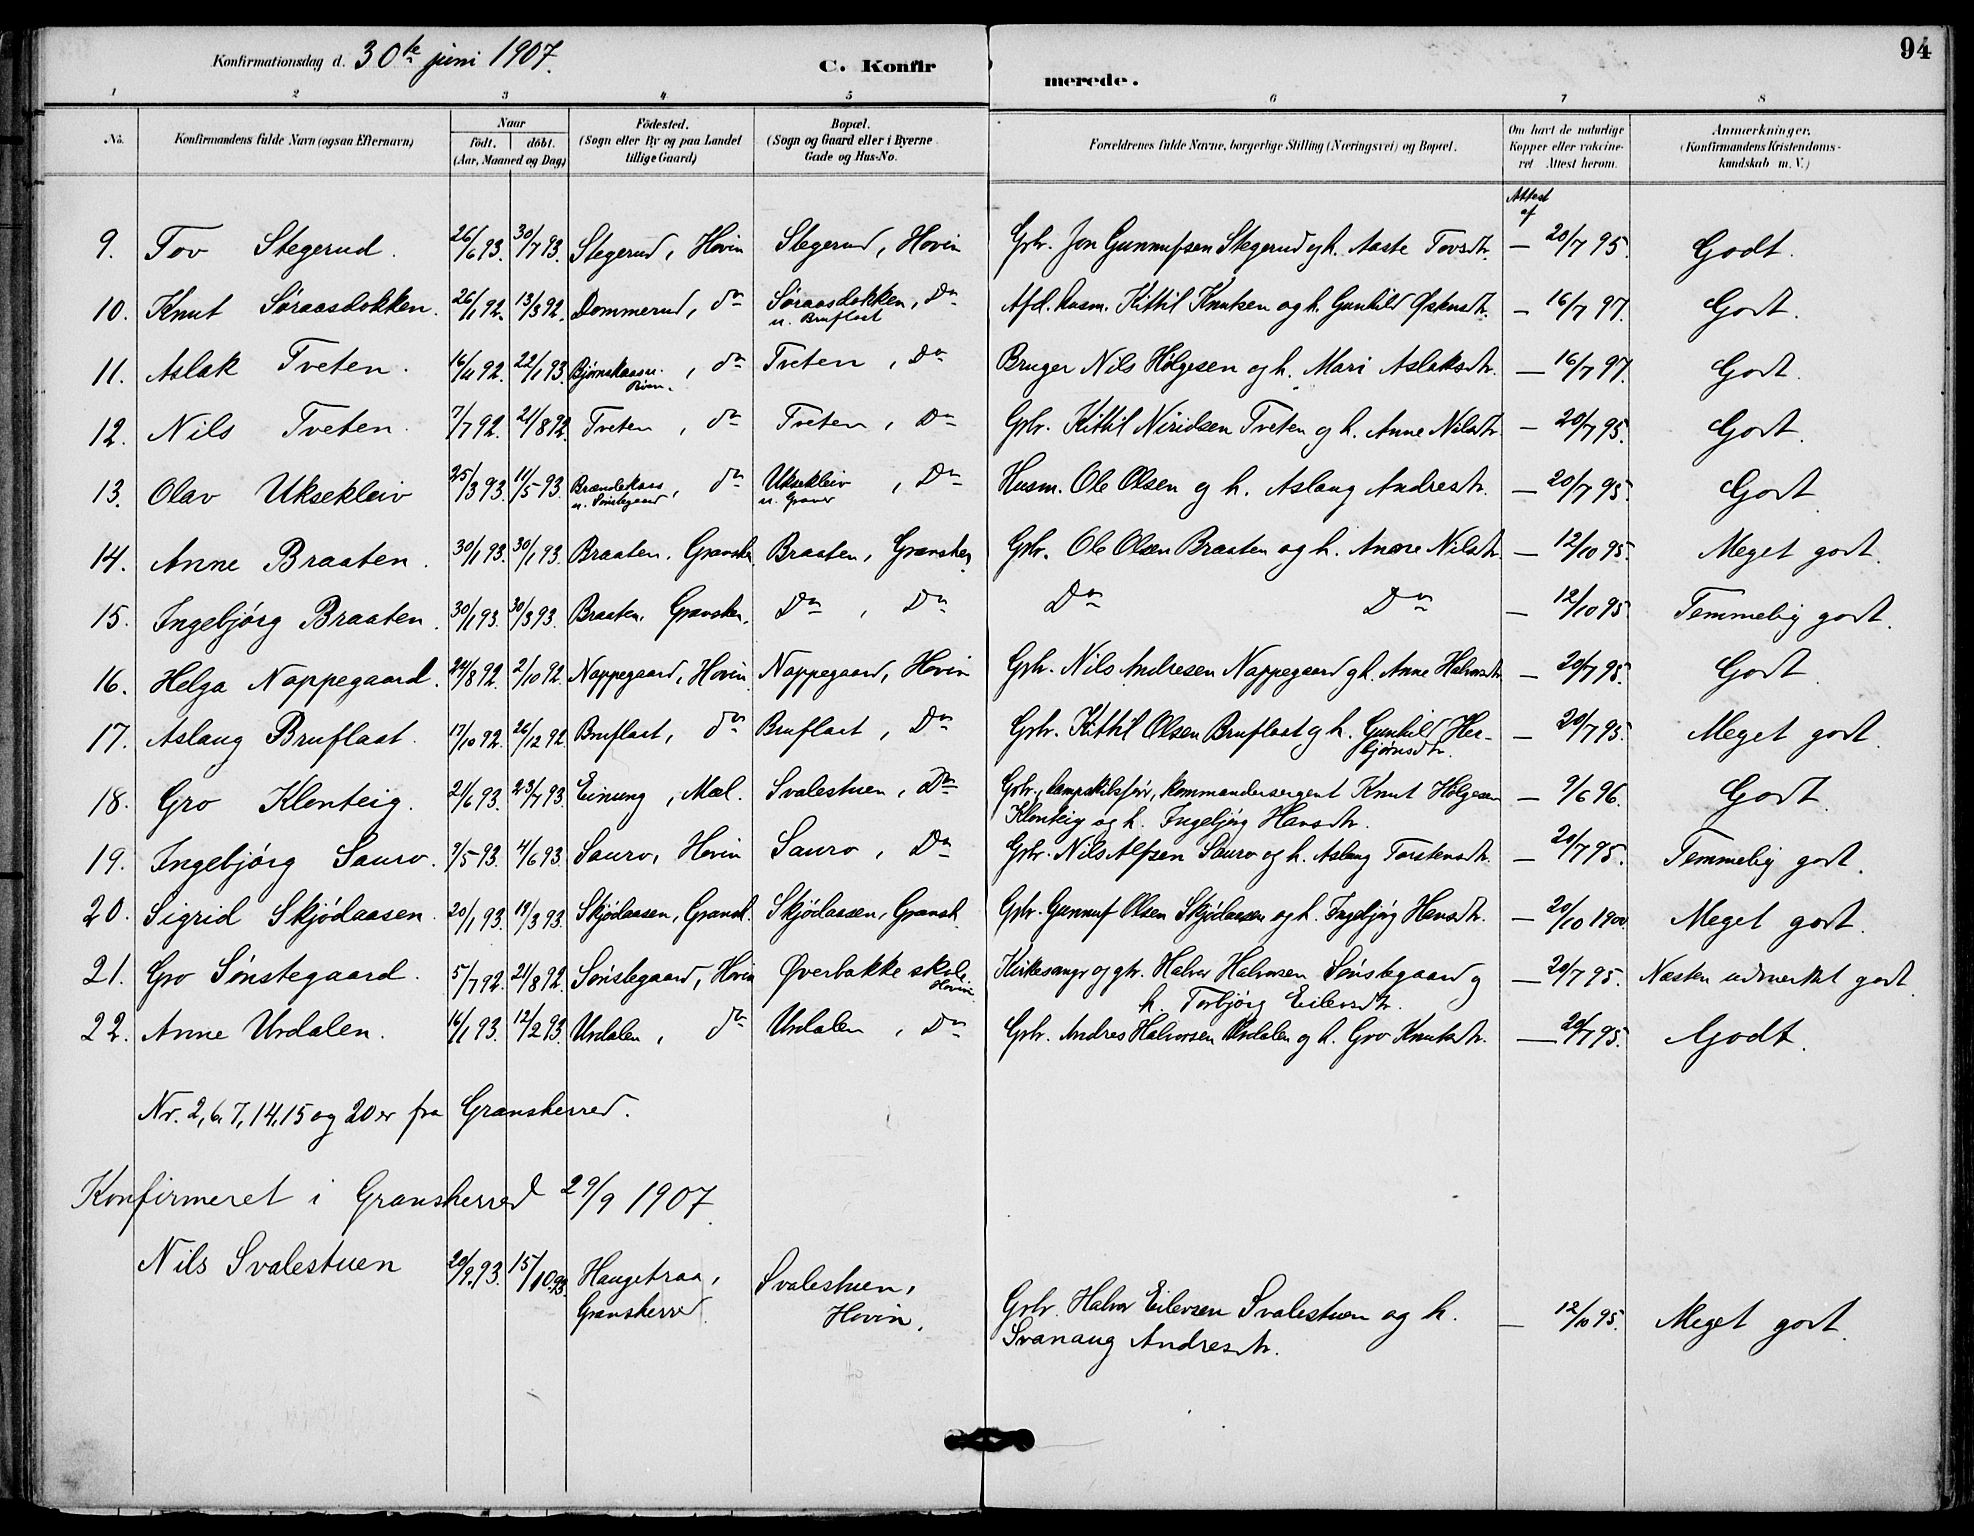 94
Konfirmationsdag d. 30te juni 1907. C. Konfir merede.
1 2 3 4 5 6 7 8
No. Konfirmandens fulde Navn (ogsaa Efternavn) Naar født. døbt. (Aar, Maaned og Dag) Fødested. (Sogn eller By og paa Landet tillige Gaard) Bopæl. (Sogn og Gaard eller i Byerne Gade og Hus-No. Forældrenes fulde Navne, borgerlige Stilling (Næringsvei) og Bopæl. Om havt de naturlige Kopper eller vakcineret Attest herom. Anmærkninger. (Konfirmandens Kristendomskundskab m. V.)
Attest af
9. Tov Stegerud. 26/6 93. 30/7 93. Stegerud, Hovin Stegerud, Hovin Gbr. Jon Gunnufsen Stegerud og h. Aaste Tovsdtr. — 20/7 95. Godt.
10. Knut Søraasdokken. 26/1 92. 13/3 92. Dommerud, do Søraasdokken, Do u. Bruflaat Afd. husm. Kittil Knutsen og h. Gunhild dtr. — 16/7 97. Godt.
11. Aslak Tveten. 16/11 92. 22/1 93. Bjørnskaasa, do Tveten, Do Bruger Nils Hølgesen og h. Mari Aslaksdtr. — 16/7 97. Godt.
12. Nils Tveten. 7/7 92. 21/8 92. Tveten, do Tveten, Do Gbr. Kittil Niridsen Tveten og h. Anne Nilsdtr — 20/7 95. Godt.
13. Olav Uksekleiv 25/3 93. 11/5 93. Brændekaas, do u. Sønstegaard Uksekleiv, Do u. Graver Husm. Ole Olsen og h. Aslaug Andresdtr. — 20/7 95. Godt
14. Anne Braaten. 30/1 93. 30/1 93. Braaten, Gransher. Braaten, Gransher. Gbr. Ole Olsen Braaten og h. Anne Nilsdtr — 12/10 95. Meget godt.
15. Ingebjørg Braaten. 30/1 93. 30/3 93. Braaten, Gransher. Do, Do Do Do — 12/10 95 Temmelig godt.
16. Helga Nappegaard. 24/8 92. 2/10 92. Nappegaard, Hovin Nappegaard, Hovin Gbr. Nils Andresen Nappegaard og h. Anne Halvorsdtr — 20/7 95. Godt
17. Aslaug Bruflaat. 17/10 92. 26/12 92 Bruflaat, do Bruflaat, Do Gbr. Kittil Olsen Bruflaat og h. Gunhild Her-
bjørnsdtr. — 20/7 95. Meget godt.
18. Gro Klonteig. 21/6 93. 23/7 93. Einung, Mæl. Svalestuen, Do Gbr., dampskibsfører, kommandersergent Knut Hølgesen
Klonteig og h. Ingebjørg Hansdtr. — 9/6 96. Godt
19. Ingebjørg Sauro. 7/5 93. 4/6 93. Sauro, Hovin Sauro, Do Gbr. Nils Alfsen Sauro og h. Aslaug Torstensdtr. — 20/7 95. Temmelig godt.
20. Sigrid Skjødaasen. 20/1 93. 19/3 93. Skjødaasen, Gransh. Skjødaasen, Gransh. Gbr. Gunnuf Olsen Skjødaasen og h. Ingebjørg Hansdtr. — 20/10 1900 Meget godt.
21. Gro Sønstegaard. 5/7 92. 21/8 92. Sønstegaard, Hovin Øverbakke skole Hovin Kirkesanger og gbr. Halvor Halvorsen Sønstegaard og
h. Torbjørg Eilevsdtr. — 20/7 95. Næsten udmerket godt
22. Anne Urdalen. 16/1 93. 12/2 93. Urdalen, do Urdalen, Do Gbr. Andres Halvorsen Urdalen og h. Gro Knutsdtr. — 20/7 95. Godt.
Nr. 2, 6, 7, 14, 15 og 20 er fra Gransherred.
Konfirmeret i Gransherred 29/9 1907.
Nils Svalestuen 20/9 93. 15/10 93. Haugetraa, Gransherred. Svalestuen, Hovin. Gbr. Halvor Eilevsen Svalestuen og h.
Svanaug Andresdtr. — 12/10 95. Meget godt.